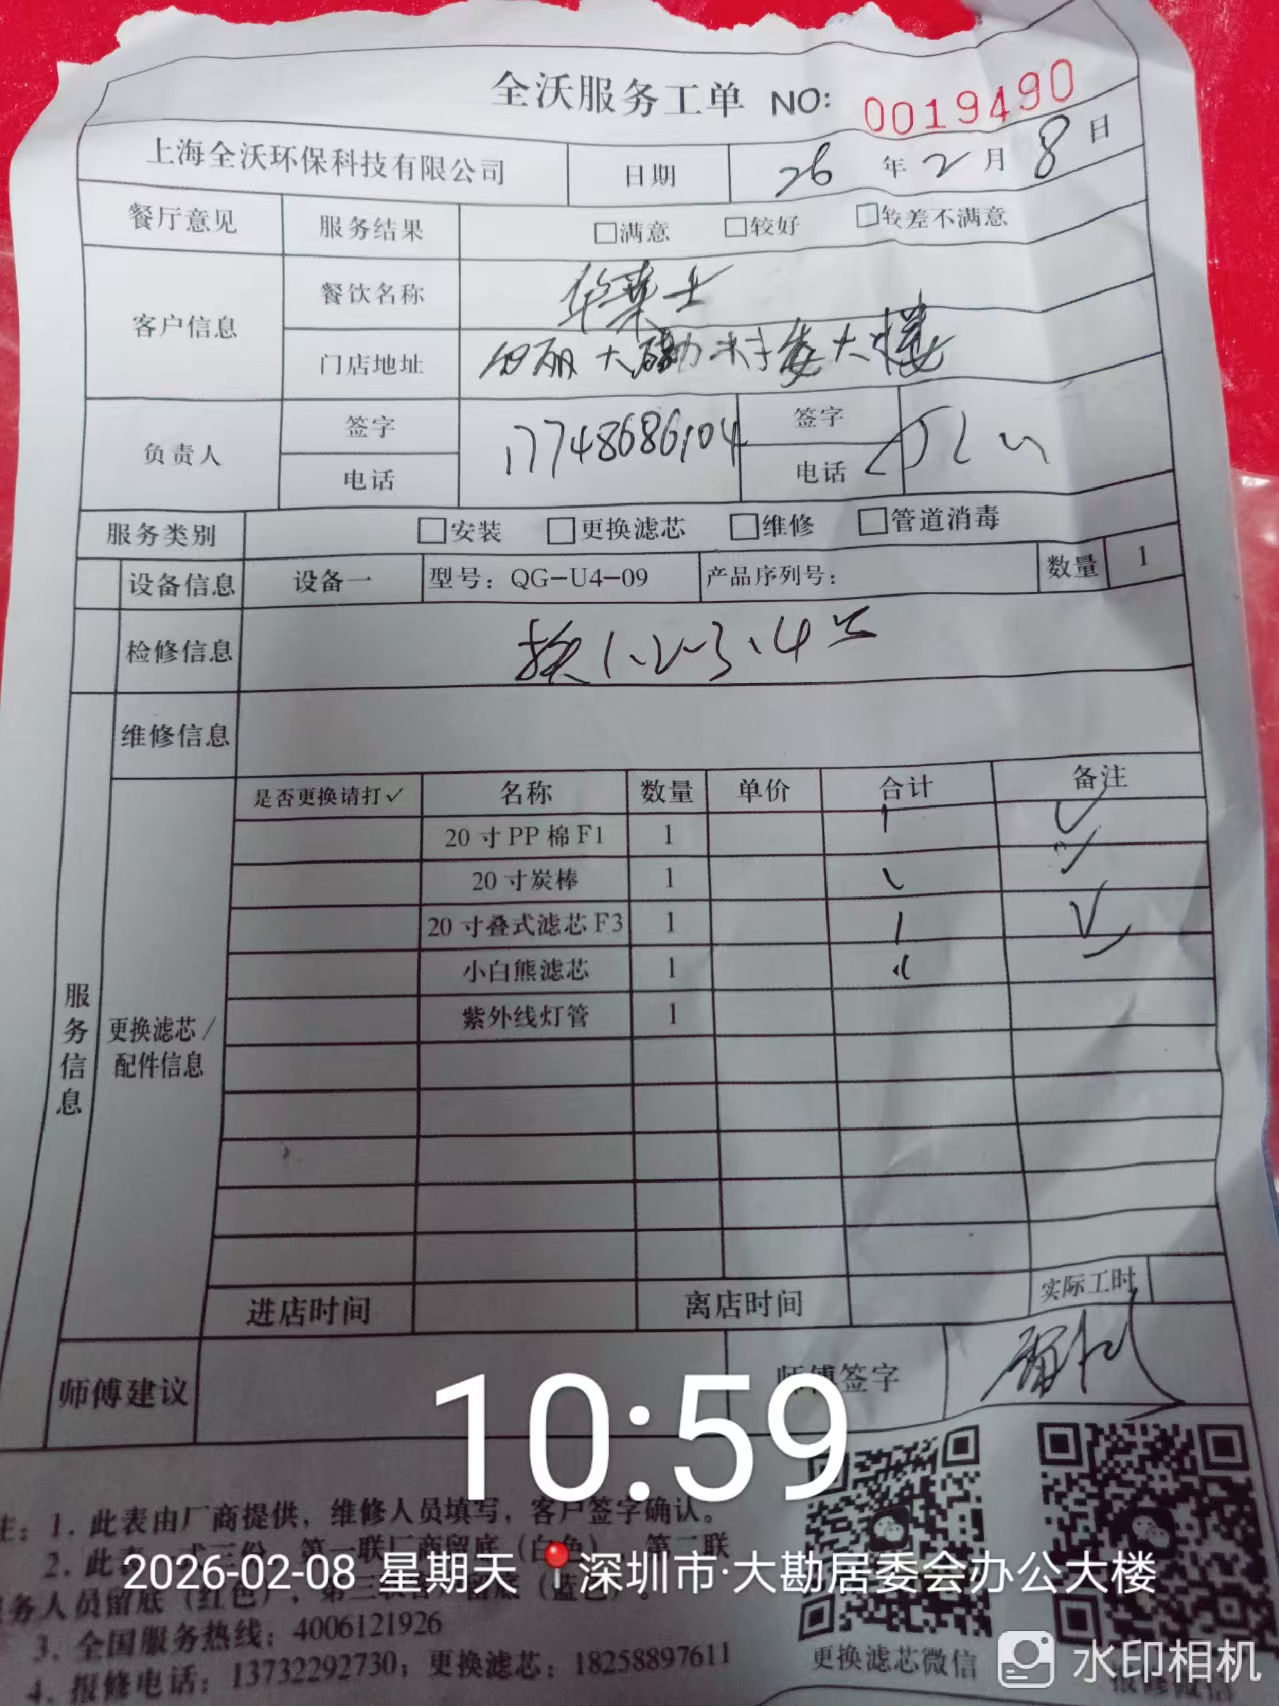 全沃服务工单 NO: 0019490
上海全沃环保科技有限公司 日期 26 年 2 月 8 日
餐厅意见 服务结果 □满意 □较好 □较差不满意
客户信息 餐饮名称 华莱士
门店地址 大勘村委大楼
负责人 签字 电话 17748686104 签字 电话
服务类别 □安装 □更换滤芯 □维修 □管道消毒
设备信息 设备一 型号：QG-U4-09 产品序列号： 数量 1
检修信息 换1.2.3.4芯
维修信息
服务信息
更换滤芯/配件信息
是否更换请打✓ 名称 数量 单价 合计 备注
20寸PP棉F1 1 1 ✓
20寸炭棒 1 ✓
20寸叠式滤芯F3 1 1 ✓
小白熊滤芯 1
紫外线灯管 1
进店时间 离店时间 实际工时
师傅建议 师傅签字
10:59
注：1. 此表由厂商提供，维修人员填写，客户签字确认。
2. 此表一式三份，第一联厂商留底（白色），第二联
2026-02-08 星期天 深圳市·大勘居委会办公大楼
务人员留底（红色），第三联客户留底（蓝色）。
3. 全国服务热线：4006121926
4. 报修电话：13732292730；更换滤芯：18258897611
更换滤芯微信 报修微信
水印相机